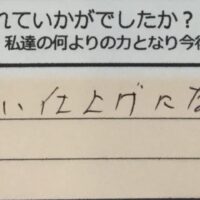 れていかがでしたか？
私達の何よりの力となり今後
い仕上げにな